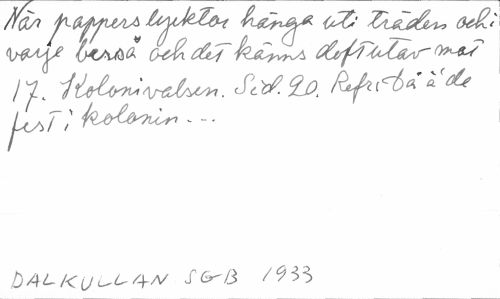 När papperslycktor hänga uti träden och i
varje berså och det känns doft utav mat
17. Kolonivalsen. Sid. 20. Refr: Då ä' de
fest i kolonin...
DALKULLAN SGB 1933